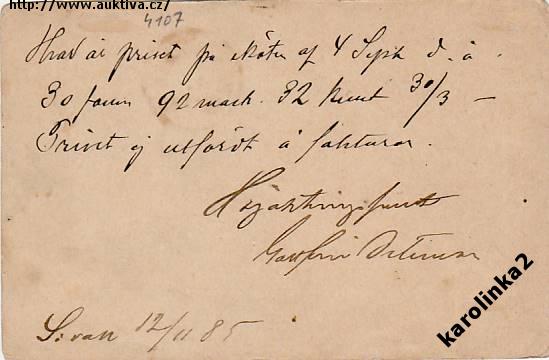 http://www.auktiva.cz/
4107
Hvad är priset på nöten af 4 Sept d. å.
30 famn 92 mack. 32 kunt 30/3 —
Priset ej utfördt å fakturor.
Högaktningsfullt
12/11 85
karolinka2